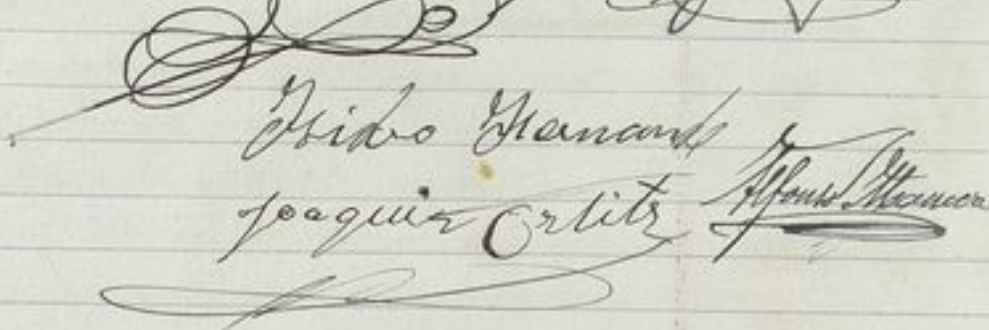 Isidro Hernand
Joaquin Ortitz Alfonso